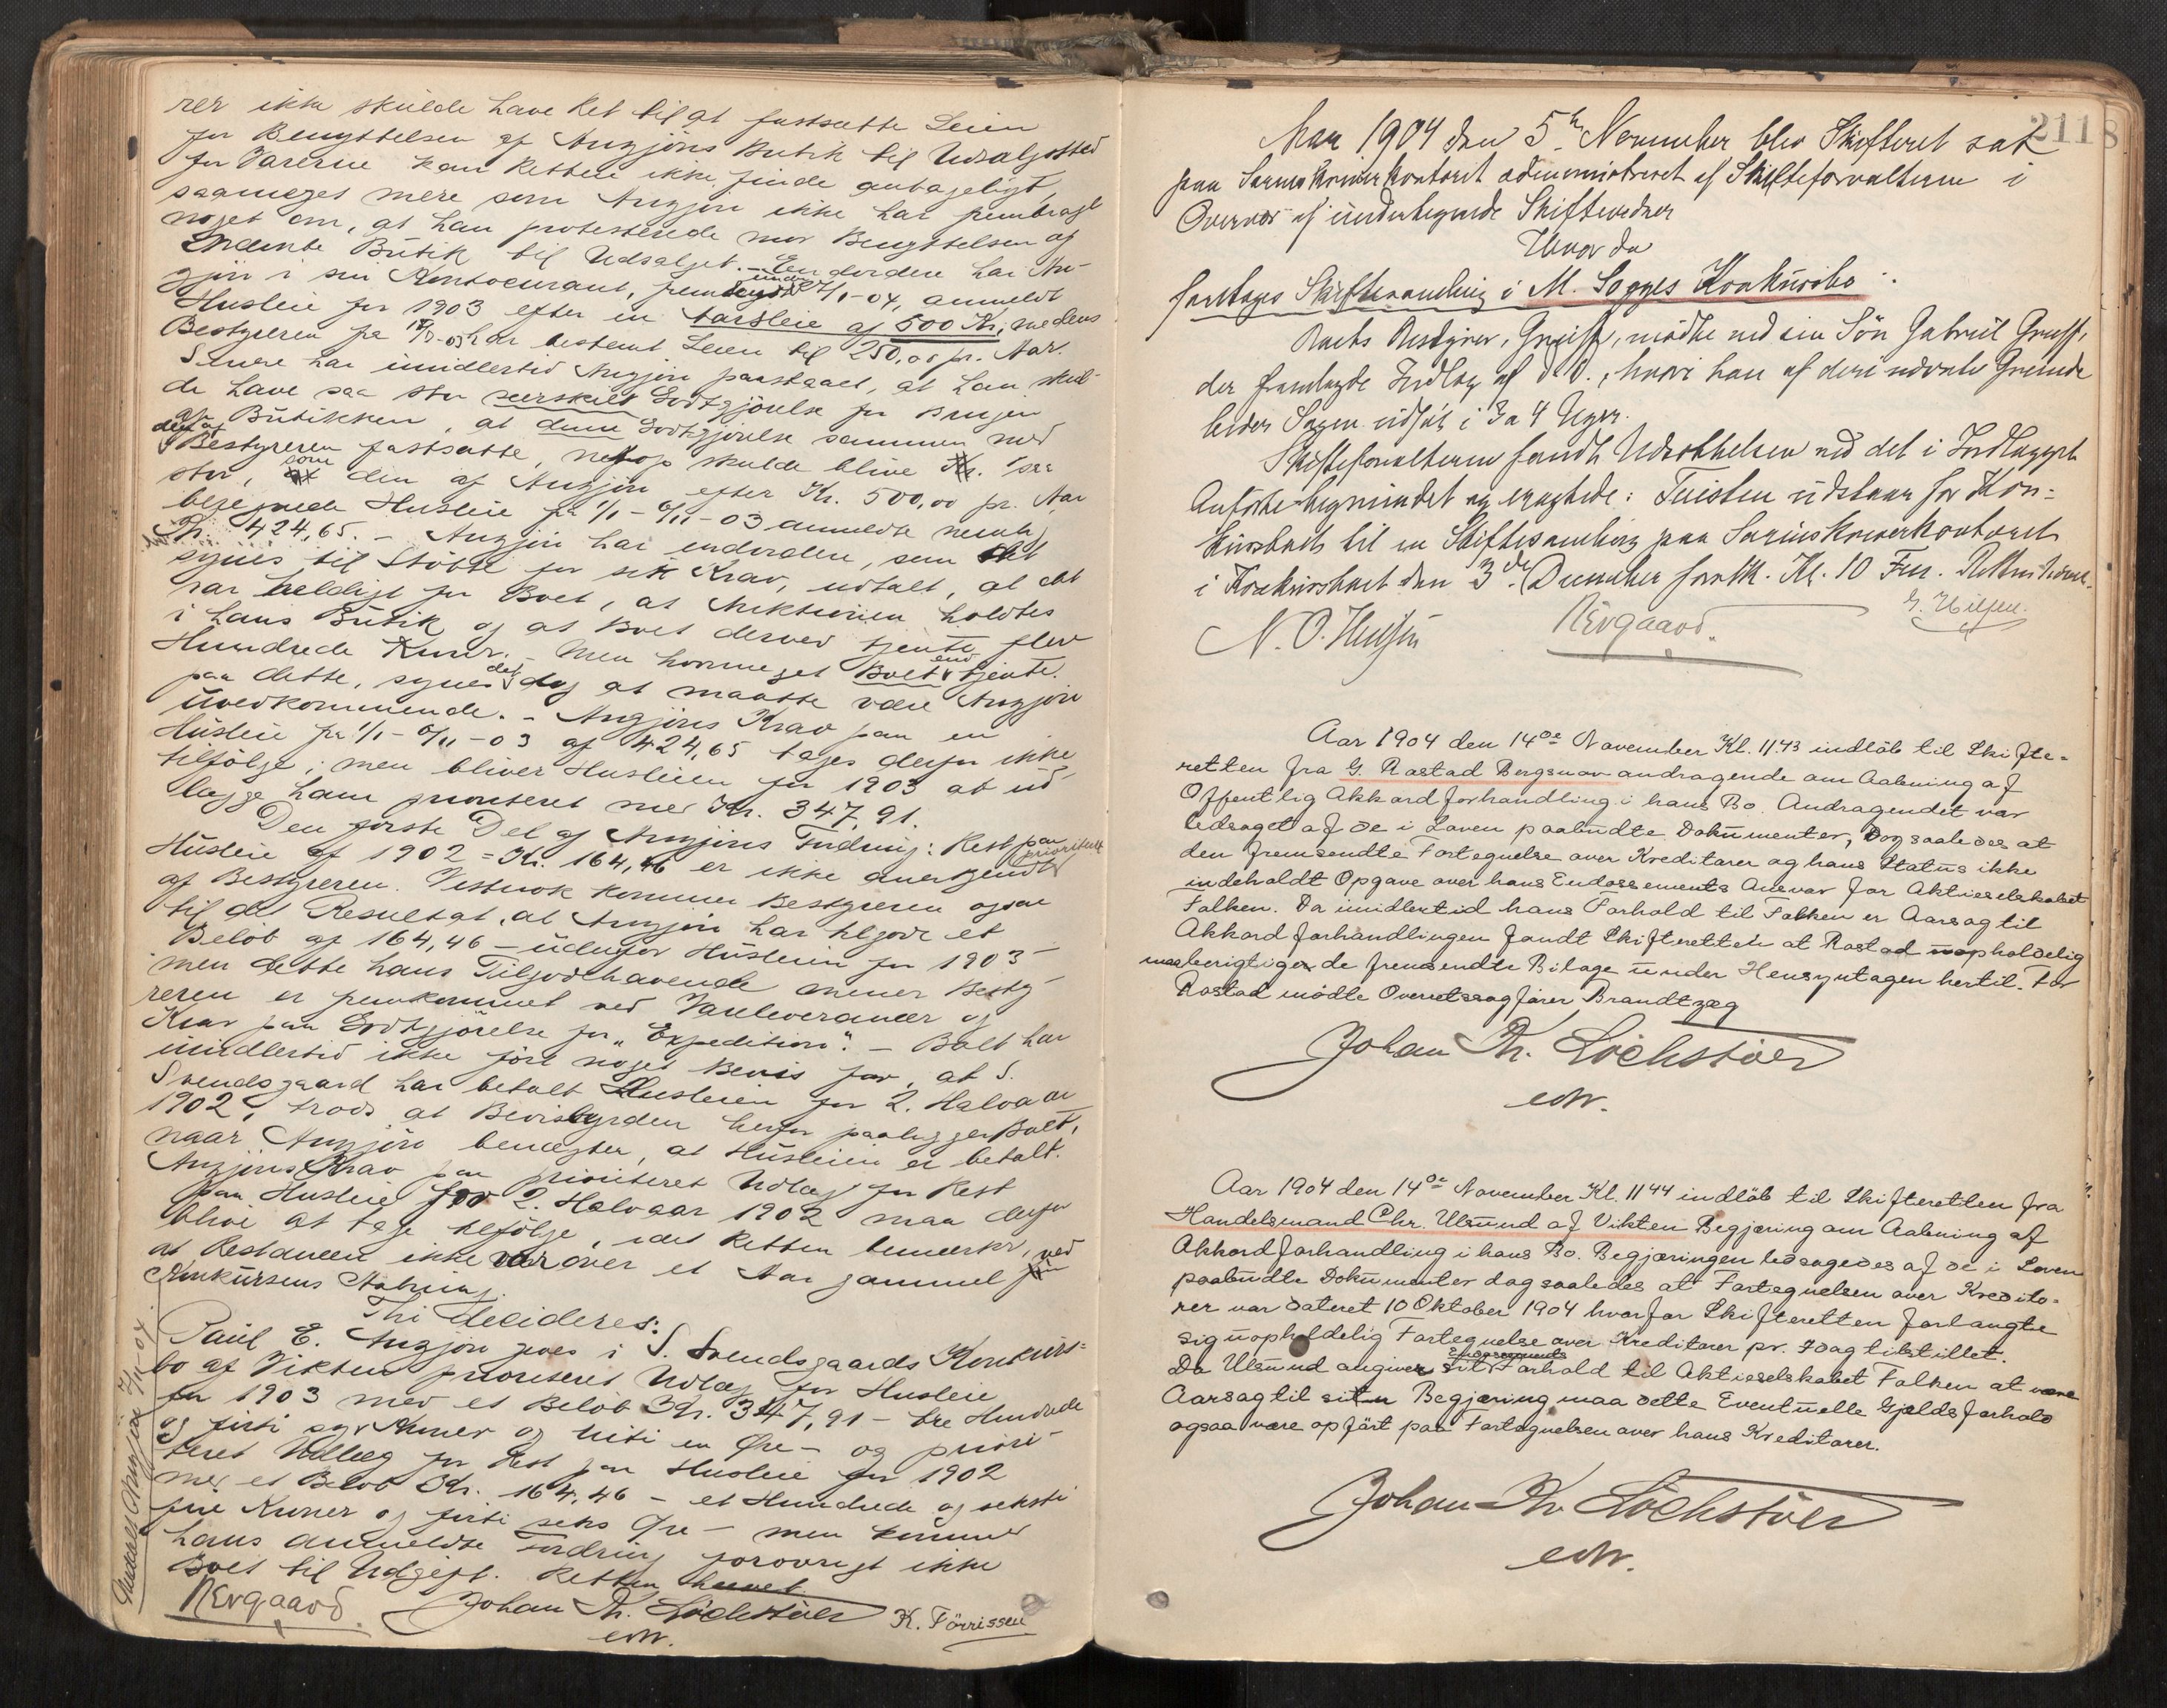 rer ikke skulde have Ret til at fastsætte Leien
for Benyttelsen af Angjöns Butik til Udsalgssted
for Varerne kan Retten ikke finde antageligt,
saameget mere som Angjön ikke har frembragt
noget om, at han protesterede mod Benyttelsen af
Butik til Udsalget. – Endvidere har An-
gjön i sin Kontocurant, 7/1-04, anmeldt
Husleie for 1903 efter en Aarsleie af 500 Kr, medens
Bestyreren har bestemt Leien til 250,00 pr. Aar.
Senere har imidlertid Angjön paastaaet, at han skul-
de have saa stor særskilt Godtgjörelse for Brugen
af Butikken, at denne Godtgjörelse sammen med
den af Bestyreren fastsatte, netop skulde blive saa
stor, som den af Angjön efter Kr. 500,00 pr. Aar
beregnede Husleie fra 1/1 - 6/11 - 03 anmeldte nemlig
Kr. 424,65. – Angjön har endvidere, som det
synes til Stötte for sit Krav, udtalt, at det
var heldigt for Boet, at Auktionen holdtes
i hans Butik og at Boet derved tjente flere
Hundrede Kroner. – Men hvormeget Boet end tjente
paa dette, synes det dog at maatte være Angjön
uvedkommende. – Angjöns Krav paa en
Husleie fra 1/1 - 6/11 - 03 af 424,65 tages derfor ikke
tilfölge; men bliver Husleien for 1903 at ud
lægge ham prioriteret med Kr. 347,91.
Den förste Del af Angjöns Fordring: Rest paa
Husleie af 1902 = Kr. 164,46 er ikke anerkjendt prioriteret
af Bestyreren. Vistnok kommer Bestyreren ogsaa
til det Resultat, at Angjön har tilgode et
Belöb af 164,46 – udenfor Husleien for 1903 –
men dette hans Tilgodehavende mener Besty-
reren er fremkommet ved Vareleverancer og
Krav paa Godtgjörelse for "Expedition". – Boet har
imidlertid ikke fört noget Bevis for, at S.
Svendsgaard har betalt Husleien for 2. Halvaar
1902, trods at Bevisbyrden herfor paaligger Boet,
naar Angjön benegter, at Husleien er betalt.
Angjöns Krav paa prioriteret Udlæg for Rest
paa Husleie for 2. Halvaar 1902 maa derfor
blive at tage tilfölge, idet Retten bemerker,
at Restancen ikke var over et Aar gammel ved
Konkursens Aabning.
Thi decideres:
Paul E. Angjön gives i S. Svendsgaards Konkurs-
bo af Vikten prioriteret Udlæg for Husleie
for 1903 med et Belöb Kr. 347,91 – tre Hundrede
og firti syv Kroner og niti en Öre – og priori-
teret Udlæg for Rest paa Husleie for 1902
med et Belöb Kr. 164,46 – et Hundrede og seksti
fire Kroner og firti seks Öre – men kommer
hans anmeldte Fordring forövrigt ikke
Boet til Udgift. Retten hævet
Nergaard Johan Kr. Löchstöer K. Förrissen
edw.
Aar 1904 den 5te November blev Skifteret sat
paa Sorenskriverkontoret administreret af Skifteforvalteren i
Overvær af undertegnede Skiftevidner
Hvor da
foretoges Skiftesamling i M. Sogges Konkursbo.
Boets Bestyrer, Greiff, mödte ved sin Sön Gabriel Greiff,
der fremlagde Indlæg af D.D., hvori han af deri nævnte Grunde
beder Sagen udsat i 3 a 4 Uger.
Skifteforvalteren fandt Udsættelsen ved det i Indlægget
Anförte begrundet og eragtede: Tvisten udstaar
til en Skiftesamling paa Sorenskriverkontoret
i Kristianssund den 3de December førstk. Kl. 10 Fm. Retten hævet.
Nergaard
Aar 1904 den 14de November Kl. 11 43 indlöb til Skifte-
retten fra G. Rastad Bergsnov andragende om Aabning af
Offentlig Akkordforhandling i hans Bo. Andragendet var
ledsaget af de i Loven paabudte Dokumenter, Dog saaledes at
den fremsendte Fortegnelse over Kreditorer og hans Status ikke
indeholdt Opgave over hans Endossements Ansvar for Aktieselskabet
Falken. Da imidlertid hans Forhold til Falken er Aarsag til
Akkordforhandlingen fandt Skifteretten at Rastad uopholdelig
maa berigtige de fremsendte Bilage under Hensyntagen hertil. For
Rastad mödte Overretssagförer Brandtzæg
Johan Kr. Löchstöer
edw.
Aar 1904 den 14de November Kl. 11 44 indlöb til Skifteretten fra
Handelsmand Chr. Ulsund af Vikten Begjæring om Aabning af
Akkordforhandling i hans Bo. Begjæringen ledsagedes af de i Loven
paabudte Dokumenter dog saaledes at Fortegnelsen over Kredito-
rer var dateret 10 Oktober 1904 hvorfor Skifteretten forlangte
sig uopholdelig Fortegnelse over Kreditorer pr. Idag tilstillet.
Da Ulsund angiver sit Endossements Forhold til Aktieselskabet Falken at være
Aarsag til sin Begjæring maa dette Eventuelle Gjeldsforhold
ogsaa være opfört paa Fortegnelsen over hans Kreditorer.
Johan Kr Löchstöer
edw.